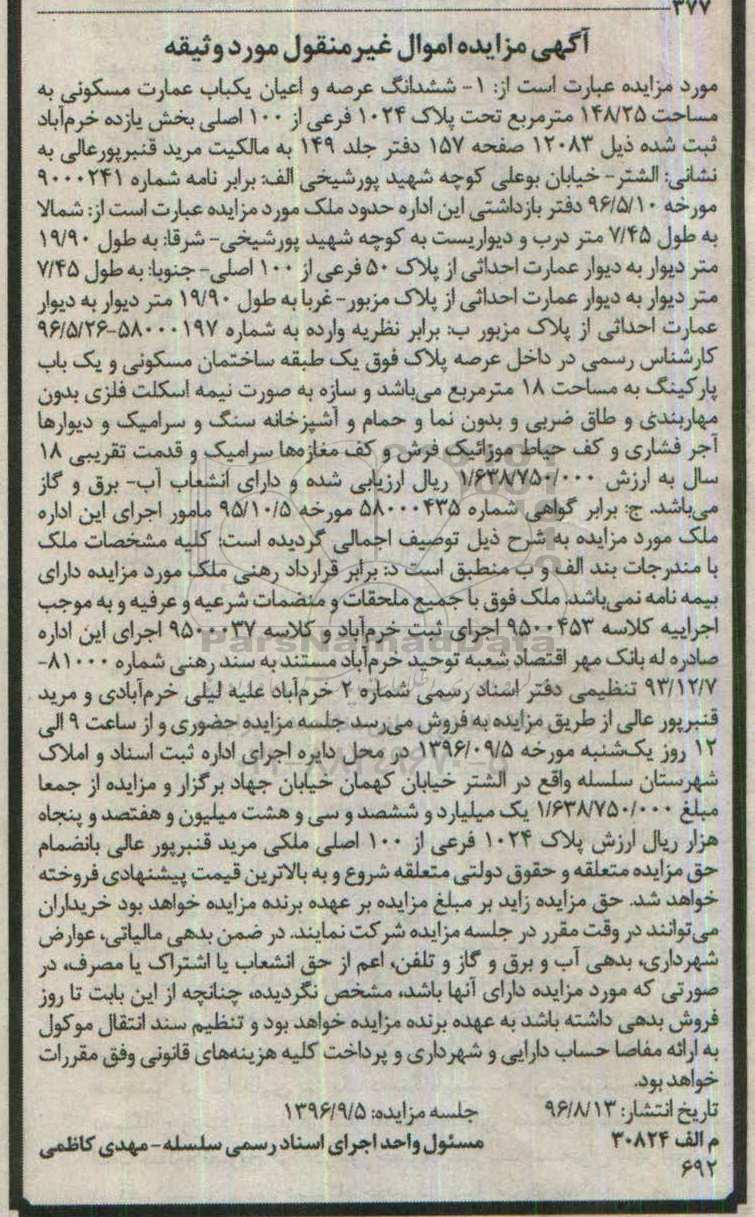 ۳۷۷
آگهی مزایده اموال غیرمنقول مورد وثیقه
مورد مزایده عبارت است از: ۱- ششدانگ عرصه و اعیان یکباب عمارت مسکونی به
مساحت ۱۴۸/۲۵ مترمربع تحت پلاک ۱۰۲۴ فرعی از ۱۰۰ اصلی بخش یازده خرم‌آباد
ثبت شده ذیل ۱۲۰۸۳ صفحه ۱۵۷ دفتر جلد ۱۴۹ به مالکیت مرید قنبرپورعالی به
نشانی: الشتر- خیابان بوعلی کوچه شهید پورشیخی الف: برابر نامه شماره ۹۰۰۰۲۴۱
مورخه ۹۶/۵/۱۰ دفتر بازداشتی این اداره حدود ملک مورد مزایده عبارت است از: شمالا
به طول ۷/۴۵ متر درب و دیواریست به کوچه شهید پورشیخی- شرقا: به طول ۱۹/۹۰
متر دیوار به دیوار عمارت احداثی از پلاک ۵۰ فرعی از ۱۰۰ اصلی- جنوبا: به طول ۷/۴۵
متر دیوار به دیوار عمارت احداثی از پلاک مزبور- غربا به طول ۱۹/۹۰ متر دیوار به دیوار
عمارت احداثی از پلاک مزبور ب: برابر نظریه وارده به شماره ۵۸۰۰۰۱۹۷-۹۶/۵/۲۶
کارشناس رسمی در داخل عرصه پلاک فوق یک طبقه ساختمان مسکونی و یک باب
پارکینگ به مساحت ۱۸ مترمربع می‌باشد و سازه به صورت نیمه اسکلت فلزی بدون
مهاربندی و طاق ضربی و بدون نما و حمام و آشپزخانه سنگ و سرامیک و دیوارها
آجر فشاری و کف حیاط موزائیک فرش و کف مغازه‌ها سرامیک و قدمت تقریبی ۱۸
سال به ارزش ۱/۶۳۸/۷۵۰/۰۰۰ ریال ارزیابی شده و دارای انشعاب آب- برق و گاز
می‌باشد. ج: برابر گواهی شماره ۵۸۰۰۰۴۳۵ مورخه ۹۵/۱۰/۵ مامور اجرای این اداره
ملک مورد مزایده به شرح ذیل توصیف اجمالی گردیده است: کلیه مشخصات ملک
با مندرجات بند الف و ب منطبق است د: برابر قرارداد رهنی ملک مورد مزایده دارای
بیمه نامه نمی‌باشد. ملک فوق با جمیع ملحقات و منضمات شرعیه و عرفیه و به موجب
اجراییه کلاسه ۹۵۰۰۴۵۳ اجرای ثبت خرم‌آباد و کلاسه ۹۵۰۰۰۳۷ اجرای این اداره
صادره له بانک مهر اقتصاد شعبه توحید خرم‌آباد مستند به سند رهنی شماره ۸۱۰۰۰-
۹۳/۱۲/۷ تنظیمی دفتر اسناد رسمی شماره ۲ خرم‌آباد علیه لیلی خرم‌آبادی و مرید
قنبرپور عالی از طریق مزایده به فروش می‌رسد جلسه مزایده حضوری و از ساعت ۹ الی
۱۲ روز یکشنبه مورخه ۱۳۹۶/۰۹/۵ در محل دایره اجرای اداره ثبت اسناد و املاک
شهرستان سلسله واقع در الشتر خیابان کهمان خیابان جهاد برگزار و مزایده از جمعا
مبلغ ۱/۶۳۸/۷۵۰/۰۰۰ یک میلیارد و ششصد و سی و هشت میلیون و هفتصد و پنجاه
هزار ریال ارزش پلاک ۱۰۲۴ فرعی از ۱۰۰ اصلی ملکی مرید قنبرپور عالی بانضمام
حق مزایده متعلقه و حقوق دولتی متعلقه شروع و به بالاترین قیمت پیشنهادی فروخته
خواهد شد. حق مزایده زاید بر مبلغ مزایده بر عهده برنده مزایده خواهد بود خریداران
می‌توانند در وقت مقرر در جلسه مزایده شرکت نمایند. در ضمن بدهی مالیاتی، عوارض
شهرداری، بدهی آب و برق و گاز و تلفن، اعم از حق انشعاب یا اشتراک یا مصرف، در
صورتی که مورد مزایده دارای آنها باشد، مشخص نگردیده، چنانچه از این بابت تا روز
فروش بدهی داشته باشد به عهده برنده مزایده خواهد بود و تنظیم سند انتقال موکول
به ارائه مفاصا حساب دارایی و شهرداری و پرداخت کلیه هزینه‌های قانونی وفق مقررات
خواهد بود.
تاریخ انتشار: ۹۶/۸/۱۳ جلسه مزایده: ۱۳۹۶/۹/۵
م الف ۳۰۸۲۴ مسئول واحد اجرای اسناد رسمی سلسله- مهدی کاظمی
۶۹۲
ParsNamadData